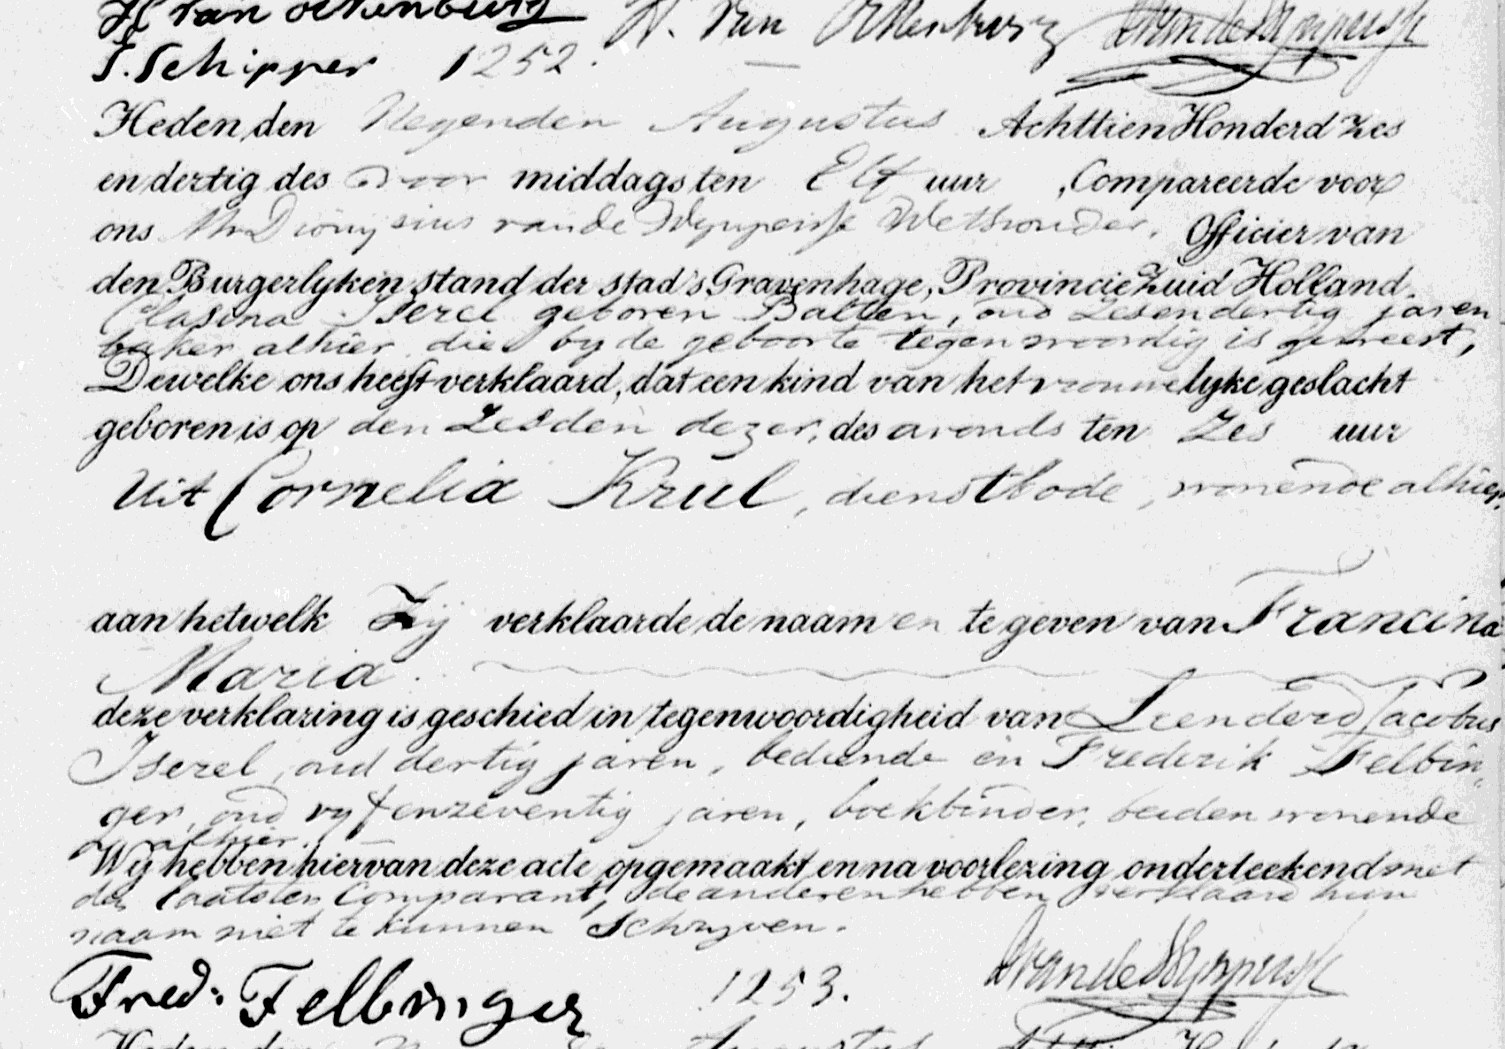 H van Ockenburg W. Van Ockenburg DvandeWynpersse
J. Schipper 1252.
Heden, den Negenden Augustus Achttien Honderd Zes
en dertig des Voor middags ten Elf uur , Compareerde voor
ons Mr. Dionysius van de Wynpersse Wethouder, Officier van
den Burgerlyken stand der stad 's Gravenhage, Provincie Zuid Holland.
Clasina Iserel geboren Balten, oud Zesendertig jaren
baker alhier die by de geboorte tegenwoordig is geweest,
Dewelke ons heeft verklaard, dat een kind van het vrouwelyke geslacht
geboren is op den Zesden dezer, des avonds ten Zes uur
Uit Cornelia Krul, dienstbode, wonende alhier,
aan hetwelk Zij verklaarde de naam en te geven van Francina
Maria.
deze verklaring is geschied in tegenwoordigheid van Leenderd Jacobus
Iserel, oud dertig jaren, bediende en Frederik Felbin
ger, oud vyfenzeventig jaren, boekbinder, beiden wonende
alhier.
Wij hebben hiervan deze acte opgemaakt en na voorlezing onderteekend met
den laatsten Comparant, de anderen hebben verklaard hun
naam niet te kunnen Schryven.
Fred: Felbinger 1253. DvandeWynpersse
Heden den Augustus Achttien Honderd